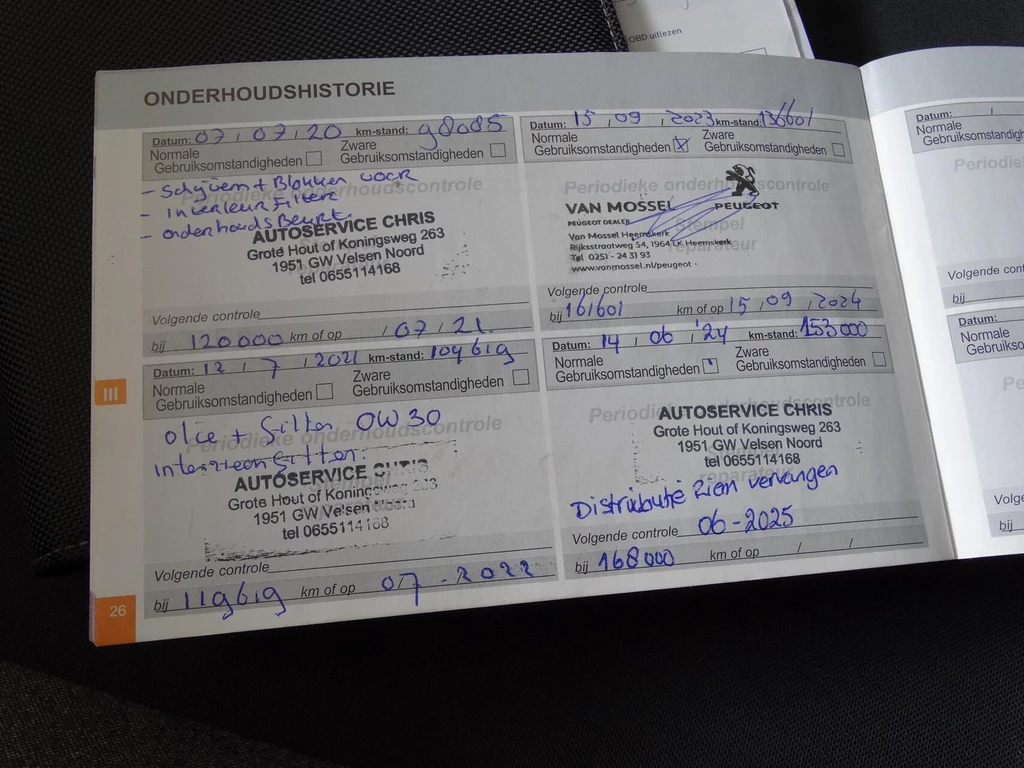 OBD uitlezen
ONDERHOUDSHISTORIE
Datum: 07 / 07 / 20 km-stand: 98085
Normale Gebruiksomstandigheden
Zware Gebruiksomstandigheden
- Schijven + Blokken voor
- Interieur Filter
- onderhoudsBeurt
Periodieke onderhoudscontrole
AUTOSERVICE CHRIS
Grote Hout of Koningsweg 263
1951 GW Velsen Noord
tel 0655114168
Volgende controle
bij 120000 km of op / 07 / 21
Datum: 12 / 7 / 2021 km-stand: 104619
Normale Gebruiksomstandigheden
Zware Gebruiksomstandigheden
olie + Filter 0W30
Periodieke onderhoudscontrole
AUTOSERVICE CHRIS
Grote Hout of Koningsweg 263
1951 GW Velsen Noord
tel 0655114168
Volgende controle
bij 119619 km of op 07 - 2022
III
26
Datum: 15 / 09 / 2023 km-stand: 136601
Normale Gebruiksomstandigheden
Zware Gebruiksomstandigheden
Periodieke onderhoudscontrole
Stempel
reparateur
VAN MOSSEL PEUGEOT
PEUGEOT DEALER
Van Mossel Heemskerk
Rijksstraatweg 54, 1964 LK Heemskerk
Tel 0251 - 24 31 93
www.vanmossel.nl/peugeot
Volgende controle
bij 161601 km of op 15 / 09 / 2024
Datum: 14 / 06 / '24 km-stand: 153000
Normale Gebruiksomstandigheden
Zware Gebruiksomstandigheden
Periodieke onderhoudscontrole
AUTOSERVICE CHRIS
Grote Hout of Koningsweg 263
1951 GW Velsen Noord
tel 0655114168
reparateur
Distributie Riem vervangen
Volgende controle 06-2025
bij 168000 km of op / /
Datum: /
Normale
Gebruiksomstandigh
Periodi
Volgende cont
bij
Datum:
Normale
Gebruikso
Pe
Volge
bij